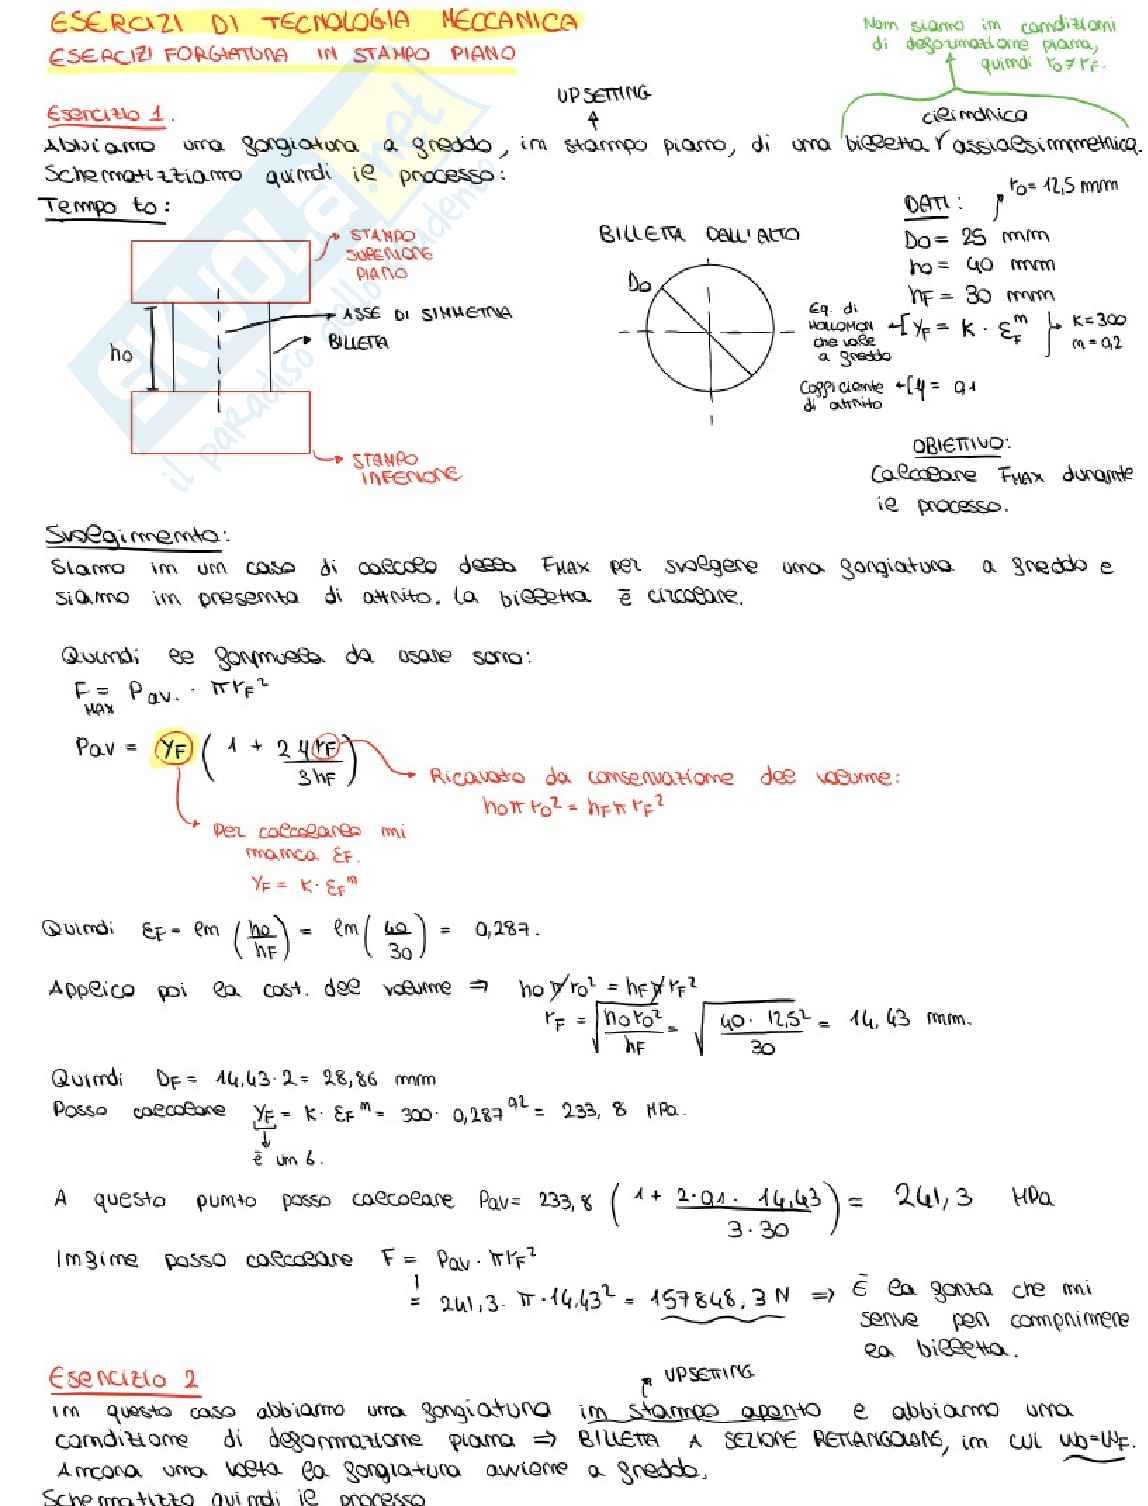 ESERCIZI DI TECNOLOGIA MECCANICA
ESERCIZI FORGIATURA IN STAMPO PIANO
Non siamo in condizioni
di deformazione piana,
quindi r0≠rF.
Esercizio 1.
UPSETTING
cilindrica
Abbiamo una forgiatura a freddo, in stampo piano, di una billetta assialsimmetrica.
Schematizziamo quindi il processo:
Tempo t0:
STAMPO
SUPERIORE
PIANO
ASSE DI SIMMETRIA
BILLETTA
h0
STAMPO
INFERIORE
BILLETTA DALL'ALTO
D0
DATI:
r0= 12,5 mm
D0= 25 mm
h0= 40 mm
hF= 30 mm
Eq. di
HOLLOMON
che vale
a freddo
YF= K · εF^n
K=300
n=0,2
Coefficiente
di attrito
μ= 0,1
OBIETTIVO:
Calcolare FMAX durante
il processo.
Svolgimento:
Siamo in un caso di calcolo della FMAX per svolgere una forgiatura a freddo e
siamo in presenza di attrito. La billetta è circolare.
Quindi le formule da usare sono:
FMAX = Pav. · πrF²
Pav = YF (1 + 2μrF/3hF)
Ricavato da conservazione del volume:
h0πr0² = hFπrF²
Per calcolarlo mi
manca εF.
YF= K· εF^n
Quindi εF= ln (h0/hF) = ln (40/30) = 0,287.
Applico poi la cost. del volume ⇒ h0πr0² = hFπrF²
rF = √(h0r0²/hF) = √(40·12,5²/30) = 14,43 mm.
Quindi DF= 14,43·2= 28,86 mm
Posso calcolare YF= K· εF^n= 300· 0,287^0,2= 233,8 MPa.
è un σ.
A questo punto posso calcolare Pav= 233,8 (1+ 2·0,1·14,43/3·30) = 241,3 MPa
Infine posso calcolare F= Pav·πrF²
= 241,3·π·14,43² = 157848,3 N ⇒ È la forza che mi
serve per comprimere
la billetta.
Esercizio 2
UPSETTING
In questo caso abbiamo una forgiatura in stampo aperto e abbiamo una
condizione di deformazione piana ⇒ BILLETTA A SEZIONE RETTANGOLARE, in cui w0=wF.
Ancora una volta la forgiatura avviene a freddo.
Schematizzo quindi il processo
SKUOLA.net
il paradiso dello studente